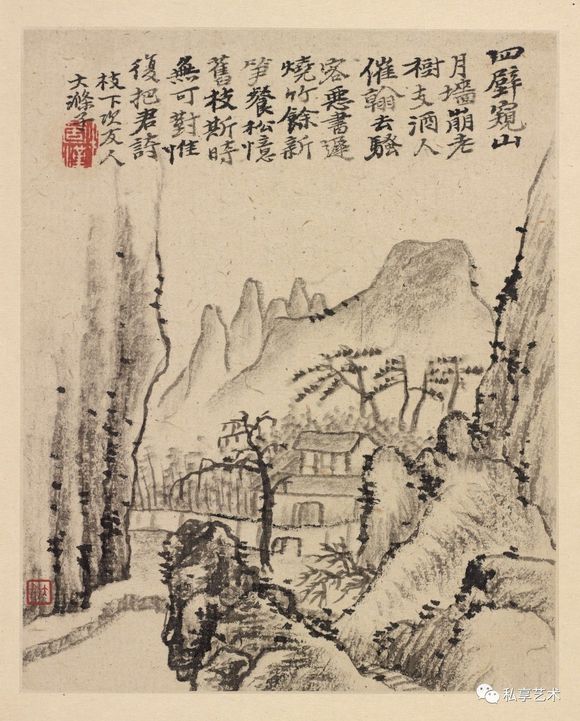 四壁窺山
月墻崩老
樹支酒人
催翰去騷
客惡書遲
燒竹餘新
筍餐松憶
舊枝斯時
無可對惟
復把君詩
枝下次友人
大滌子
私享艺术